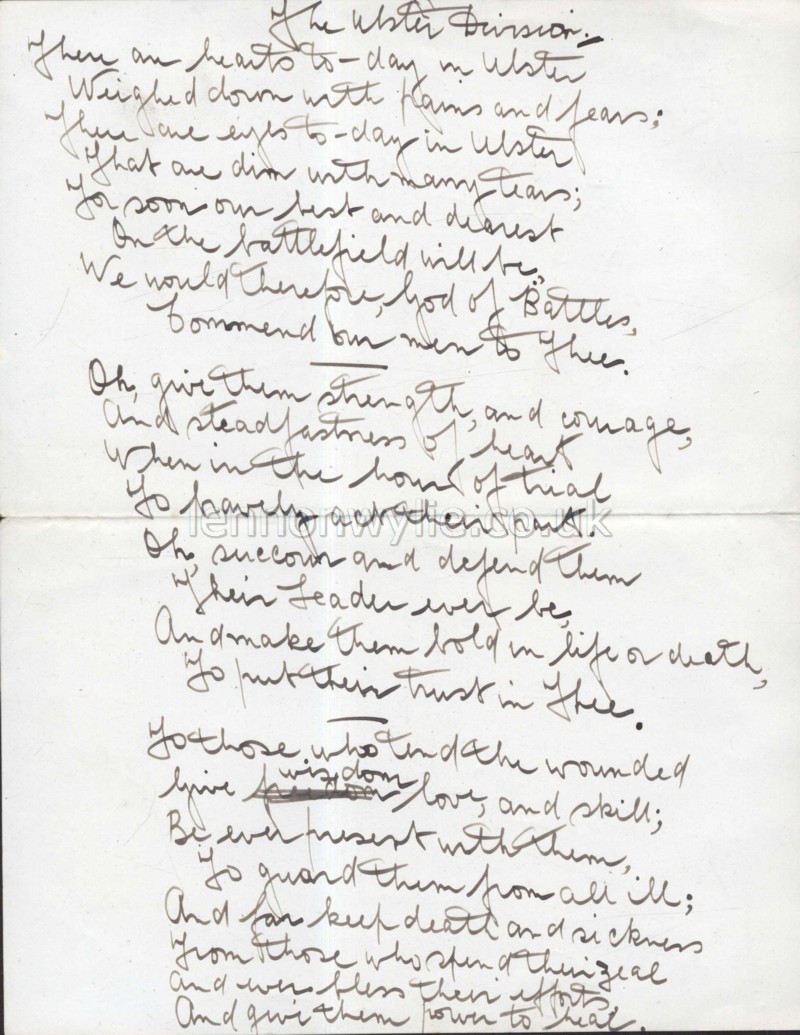 The Ulster Division.
There are hearts to-day in Ulster
Weighed down with pains and fears;
There are eyes to-day in Ulster
That are dim with many tears;
For soon our best and dearest
On the battlefield will be,
We would therefore, God of Battles,
Commend our men to Thee.
Oh, give them strength, and courage,
And steadfastness of heart
When in the hour of trial
To bravely act their part.
lennonwylie.co.uk
Oh, succour and defend them
Their Leader ever be,
And make them bold in life or death,
To put their trust in Thee.
To those who tend the wounded
wisdom
Give freedom love, and skill;
Be ever present with them,
To guard them from all ill;
And far keep death and sickness
From those who spend their zeal
and ever bless their efforts,
And give them power to heal.